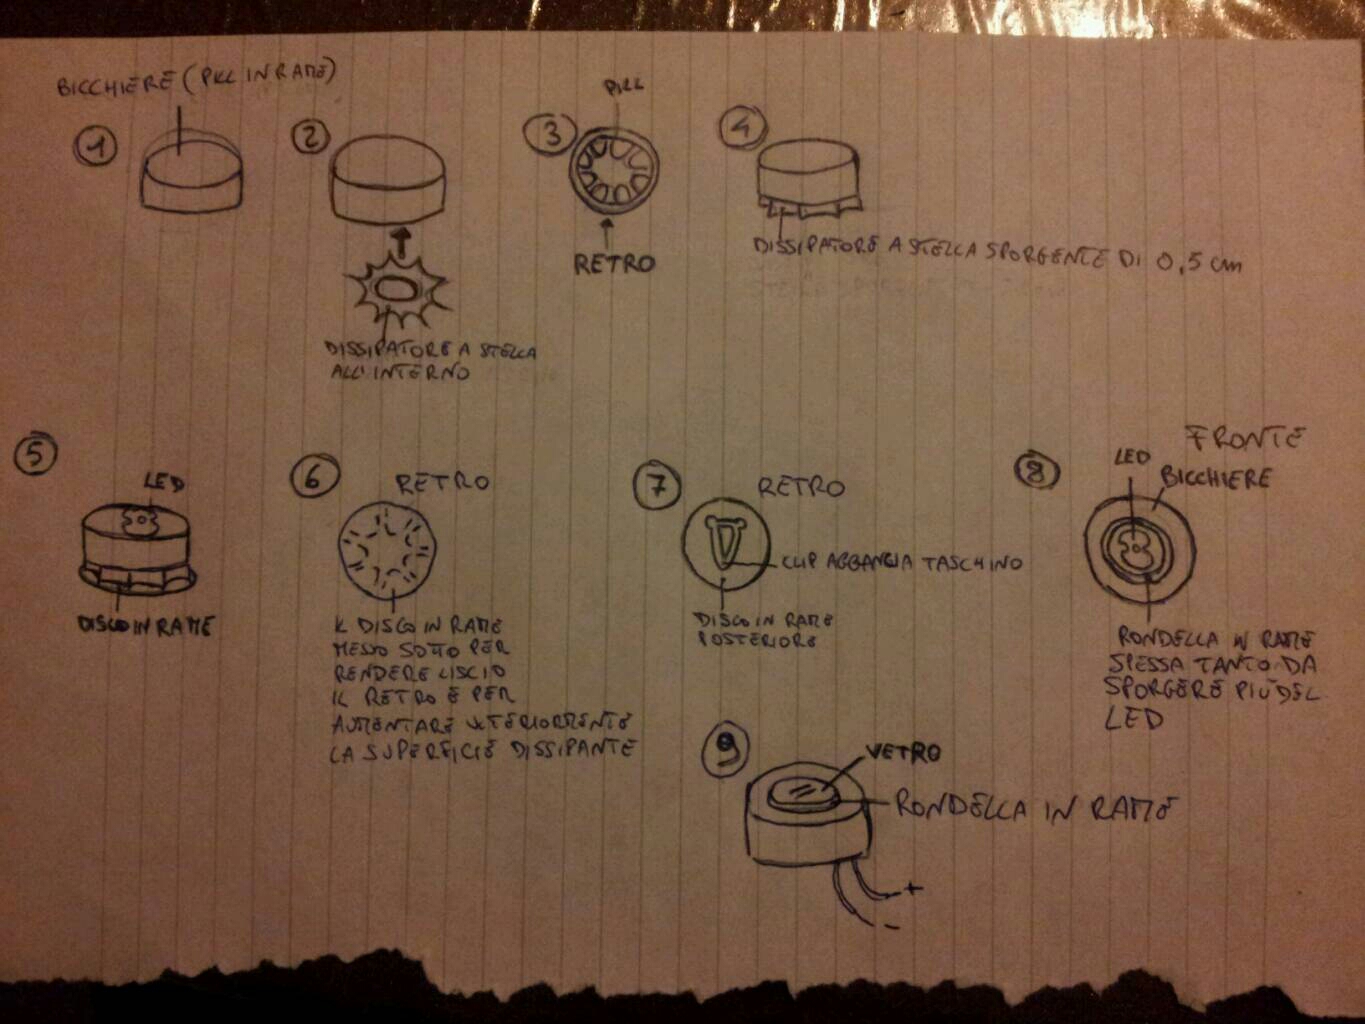 BICCHIERE (PILL IN RAME)
1
2
DISSIPATORE A STELLA
ALL'INTERNO
3
PILL
RETRO
4
DISSIPATORE A STELLA SPORGENTE DI 0,5 cm
5
LED
DISCO IN RAME
6
RETRO
IL DISCO IN RAME
MESSO SOTTO PER
RENDERE LISCIO
IL RETRO E PER
AUMENTARE ULTERIORMENTE
LA SUPERFICIE DISSIPANTE
7
RETRO
CLIP AGGANCIA TASCHINO
DISCO IN RAME
POSTERIORE
8
FRONTE
LED
BICCHIERE
RONDELLA IN RAME
SPESSA TANTO DA
SPORGERE PIÙ DEL
LED
9
VETRO
RONDELLA IN RAME
+
-